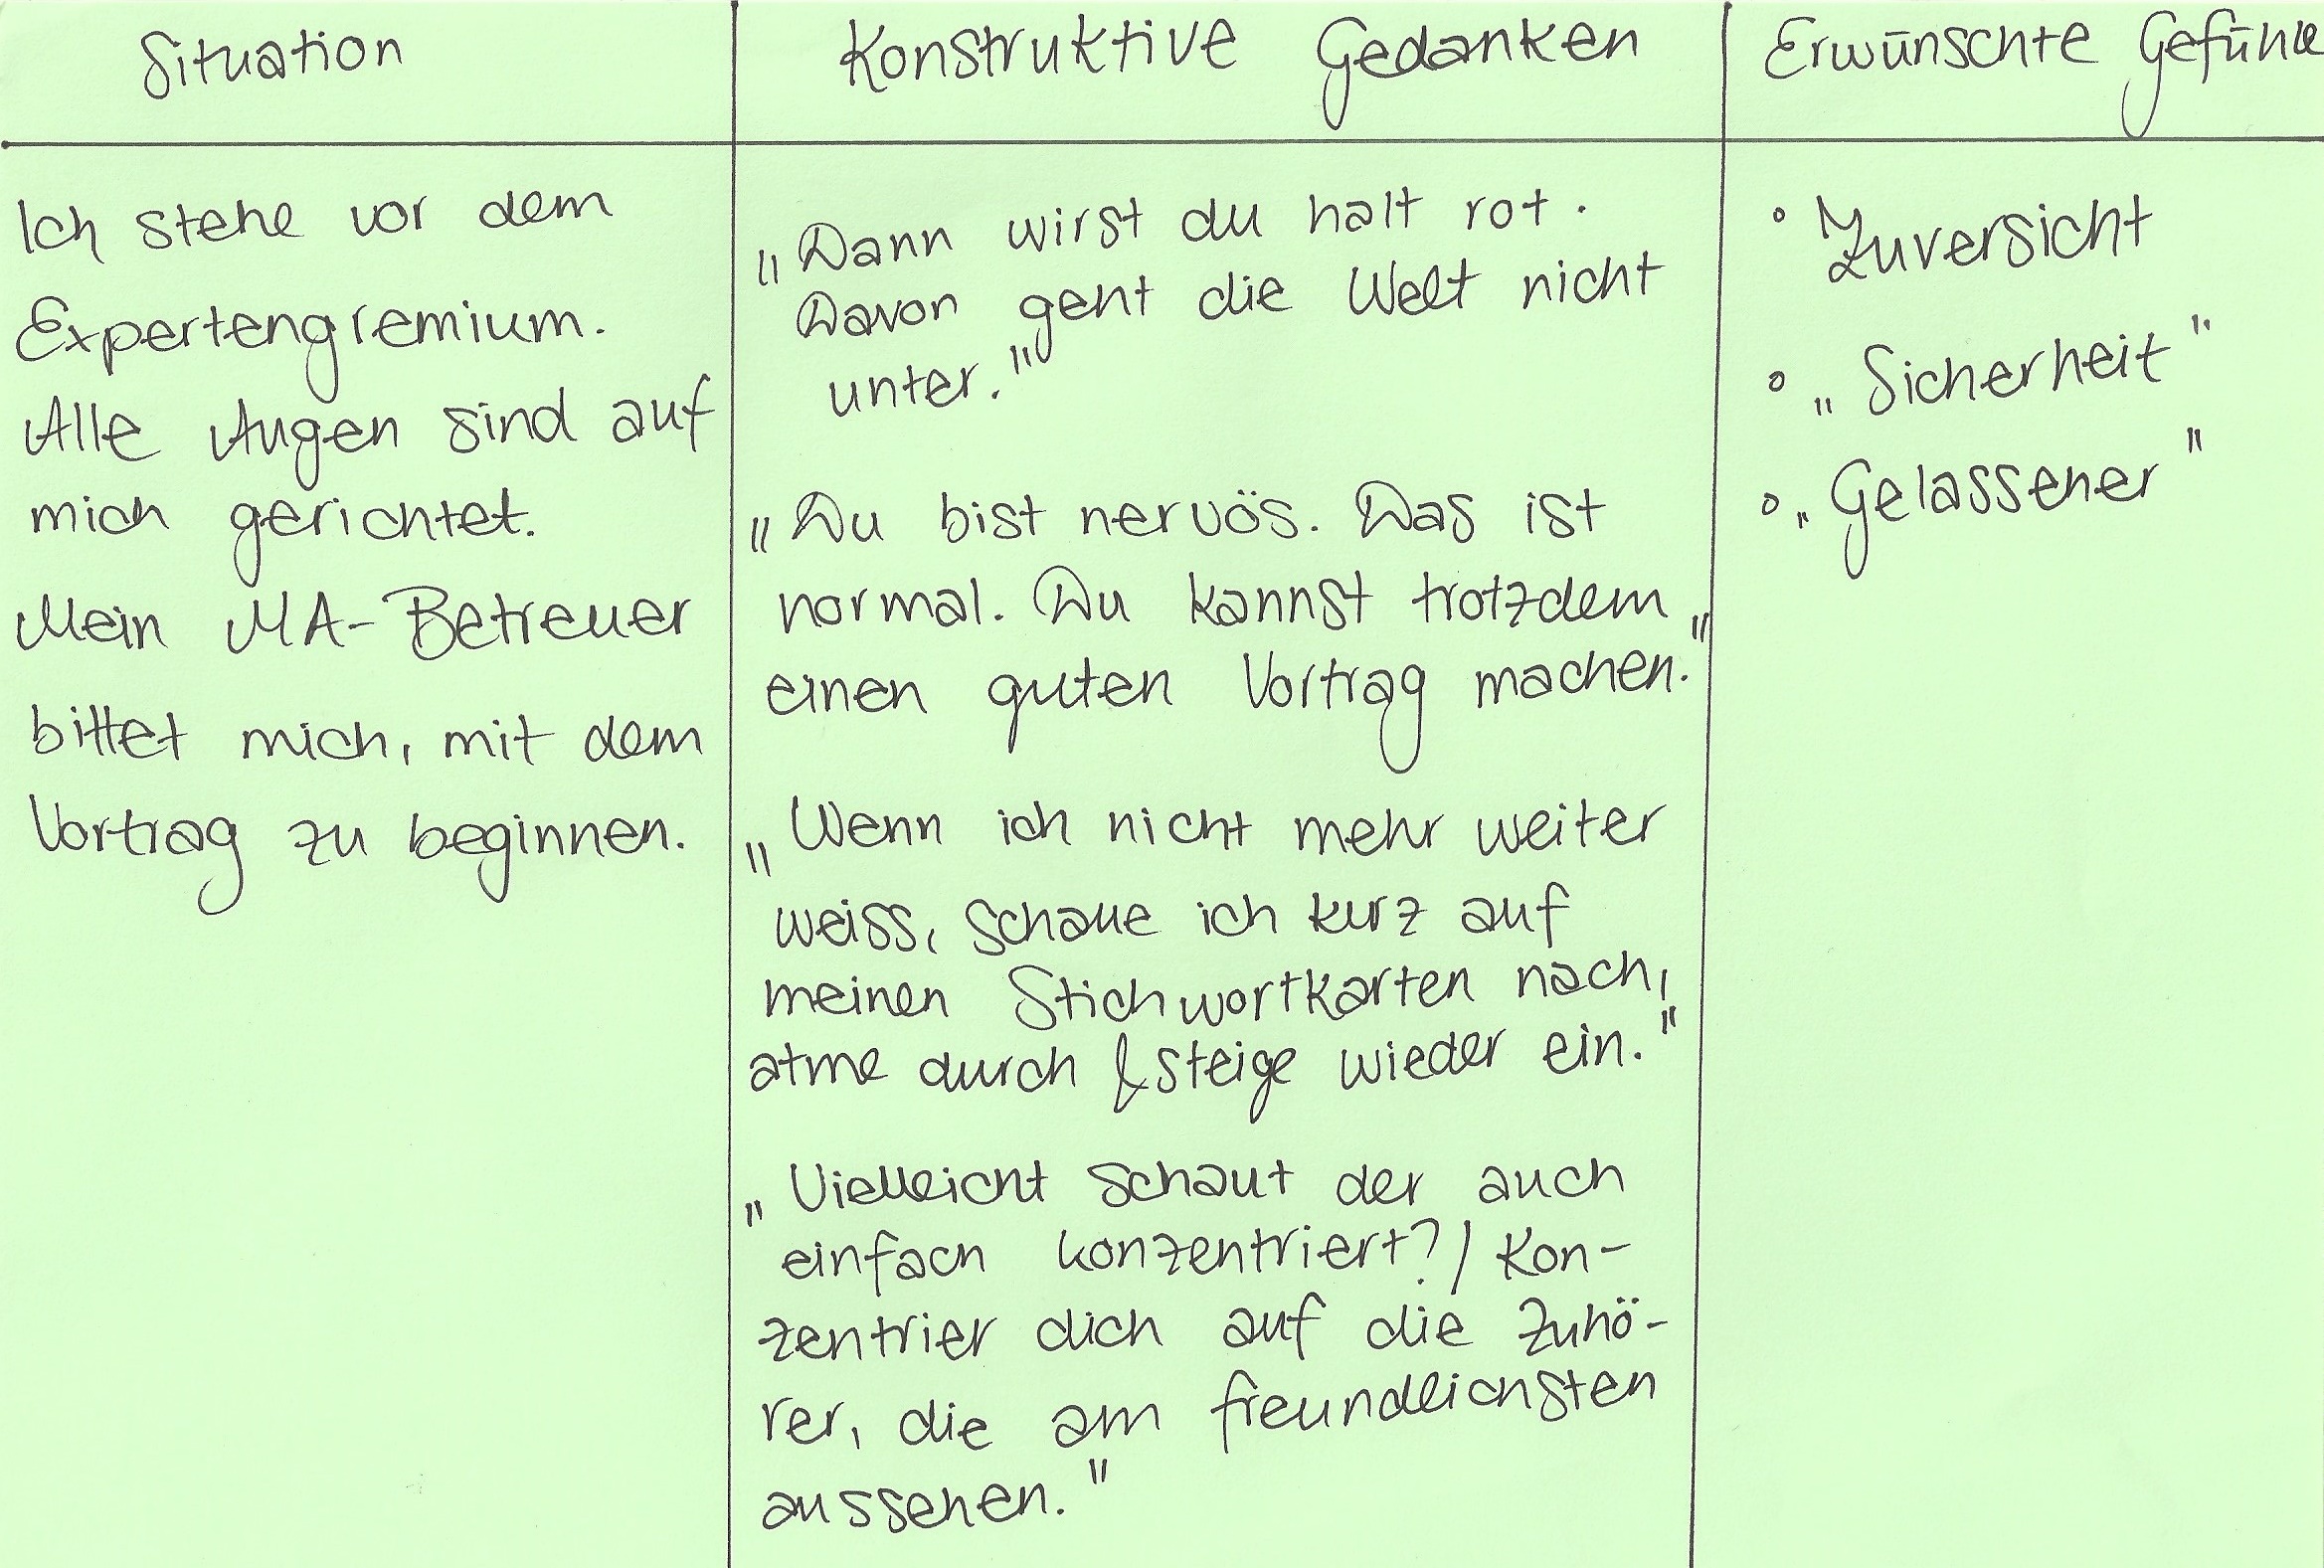 Situation
Ich stehe vor dem
Expertengremium.
Alle Augen sind auf
mich gerichtet.
Mein MA-Betreuer
bittet mich, mit dem
Vortrag zu beginnen.
Konstruktive Gedanken
„Dann wirst du halt rot.
Davon geht die Welt nicht
unter."
„Du bist nervös. Das ist
normal. Du kannst trotzdem
einen guten Vortrag machen.„
„Wenn ich nicht mehr weiter
weiss, schaue ich kurz auf
meinen Stichwortkarten nach,
atme durch & steige wieder ein."
„Vielleicht schaut der auch
einfach konzentriert?/ Kon-
zentrier dich auf die Zuhö-
rer, die am freundlichsten
aussehen."
Erwünschte Gefühle
° Zuversicht
° „Sicherheit"
° „Gelassener"